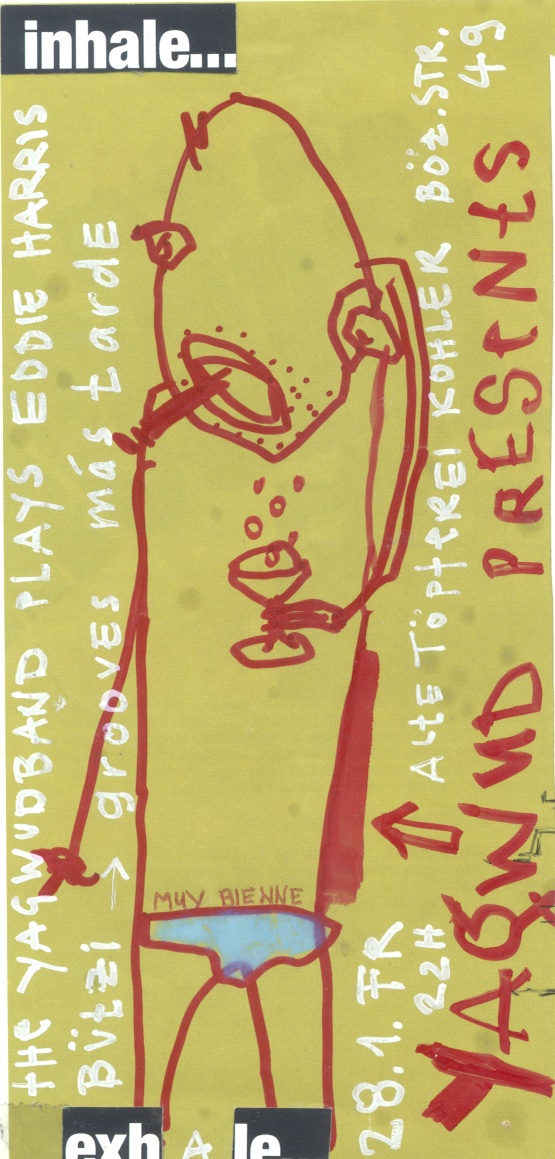 inhale...
tHE YAGWUDBAND PLAYS EDDIE HARRIS
Bützi → grooves más tarde
MUY BIENNE
28.1. FR
22H
AltE TÖPfEREI KOHLER BÖZ.STR. 49
YAGWUD PRESENtS
exh A le...